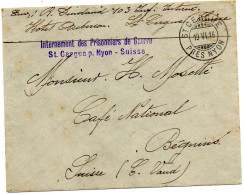 Hôtel
St. Cergue
Internement des Prisonniers de Guerre
St. Cergue s. Nyon - Suisse
ST CERGUE
19.VI.16
PRÈS NYON
Monsieur H. Mosette
Café National
Begnins
Suisse (C. Vaud)